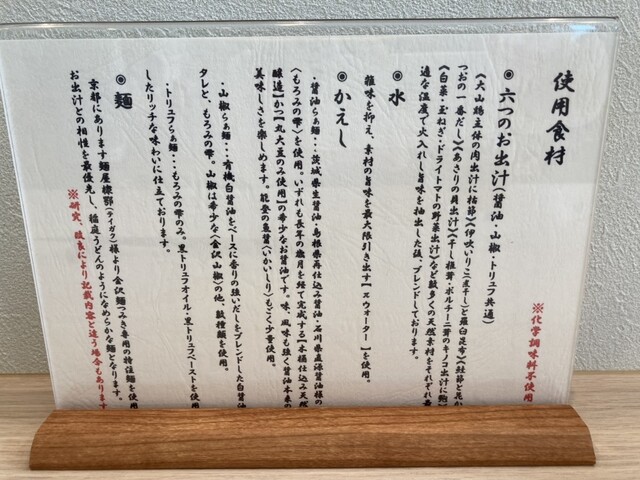 使用食材
※化学調味料不使用
◉六つのお出汁(醤油・山椒・トリュフ共通)
《大山鶏主体の肉出汁に枯節》《伊吹いりこ(煮干し)と羅臼昆布》《鮭節と花か
つおの一番だし》《あさりの貝出汁》《干し椎茸・ポルチーニ茸のキノコ出汁に鮑》
《白菜・玉ねぎ・ドライトマトの野菜出汁》など数多くの天然素材をそれぞれ最
適な温度で火入れし旨味を抽出した後、ブレンドしております。
◉水
雑味を抑え、素材の旨味を最大限引き出す【エウォーター】を使用。
◉かえし
・醤油らぁ麺・・・茨城県生醤油・島根県再仕込み醤油・石川県直源醤油様の
《もろみの雫》を使用。いずれも長年の歳月を経て完成する【木桶仕込み天然
醸造】かつ【丸大豆のみ使用】の希少なお醤油です。味、風味も強く醤油本来の
美味しさを楽しめます。能登の魚醤(いかいしり)もごく少量使用。
・山椒らぁ麺・・・有機白醤油をベースに香りの強いだしをブレンドした白醤油
タレと、もろみの雫。山椒は希少な《金沢山椒》の他、数種類を使用。
・トリュフらぁ麺・・・もろみの雫のみ。黒トリュフオイル・黒トリュフペーストを使用
したリッチな味わいに仕立ております。
◉麺
京都にあります麺屋棣鄂(テイガク)様より金沢麺つみき専用の特注麺を使用
お出汁との相性を最優先し、稲庭うどんのようになめらかな麺となります。
※研究、改良により記載内容と違う場合もあります